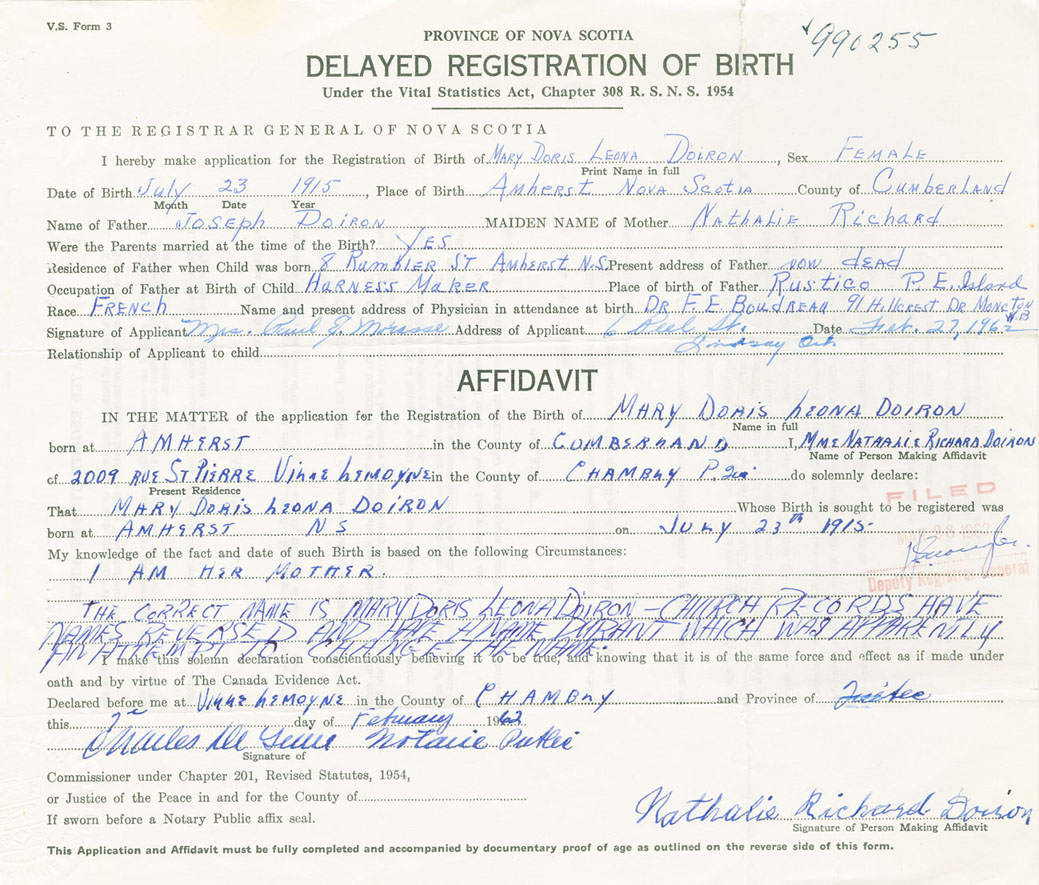 V.S. Form 3
990255
PROVINCE OF NOVA SCOTIA
DELAYED REGISTRATION OF BIRTH
Under the Vital Statistics Act, Chapter 308 R. S. N. S. 1954
TO THE REGISTRAR GENERAL OF NOVA SCOTIA
I hereby make application for the Registration of Birth of MARY DORIS LEONA DOIRON, Sex FEMALE
Print Name in full
Date of Birth July 23 1915, Place of Birth Amherst NOVA SCOTIA County of CUMBERLAND
Month Date Year
Name of Father JOSEPH DOIRON MAIDEN NAME of Mother NATHALIE Richard
Were the Parents married at the time of the Birth? YES
Residence of Father when Child was born 8 Rumbler ST Amherst N.S. Present address of Father now dead
Occupation of Father at Birth of Child HARNESS MAKER Place of birth of Father Rustico P.E. Island
Race FRENCH Name and present address of Physician in attendance at birth DR F.E. BOUDREAU 91 Hillcrest Dr MONCTON NB
Signature of Applicant Mrs. Paul J. Address of Applicant 6 St. Date Feb. 27, 1962
Lindsay Ont
Relationship of Applicant to child
AFFIDAVIT
IN THE MATTER of the application for the Registration of the Birth of MARY DORIS LEONA DOIRON
Name in full
born at AMHERST in the County of CUMBERLAND I, MME NATHALIE RICHARD DOIRON
Name of Person Making Affidavit
of 2009 RUE ST PIERRE VILLE LEMOYNE in the County of CHAMBLY P. do solemnly declare:
Present Residence
FILED
That MARY DORIS LEONA DOIRON Whose Birth is sought to be registered was
born at AMHERST NS on JULY 23th 1915-
My knowledge of the fact and date of such Birth is based on the following Circumstances:
I AM HER MOTHER.
Deputy Registrar General
THE CORRECT NAME IS MARY DORIS LEONA DOIRON - CHURCH RECORDS HAVE
NAMES REVERSED AND HAVE NAME DURANT WHICH WAS APPARENTLY
AN ATTEMPT TO CHANGE THE NAME.
I make this solemn declaration conscientiously believing it to be true, and knowing that it is of the same force and effect as if made under
oath and by virtue of The Canada Evidence Act.
Declared before me at VILLE LEMOYNE in the County of CHAMBLY and Province of Quebec
this day of February 1962
Charles Notaire Public
Signature of
Commissioner under Chapter 201, Revised Statutes, 1954,
or Justice of the Peace in and for the County of
If sworn before a Notary Public affix seal.
Nathalie Richard Doiron
Signature of Person Making Affidavit
This Application and Affidavit must be fully completed and accompanied by documentary proof of age as outlined on the reverse side of this form.